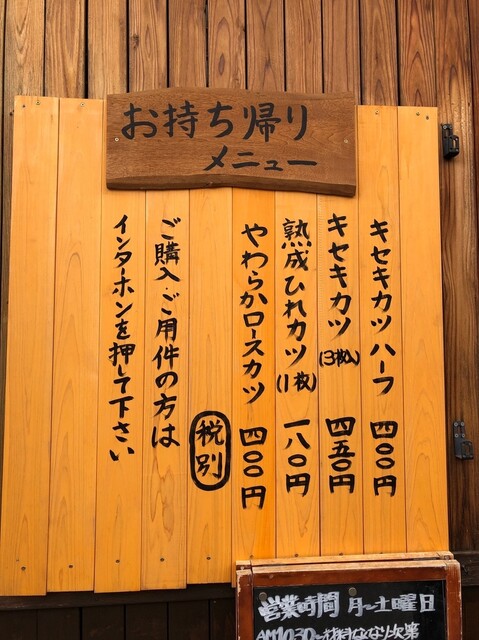 お持ち帰り
メニュー
キセキカツハーフ 四〇〇円
キセキカツ(3枚入) 四五〇円
熟成ひれカツ(1枚) 一八〇円
やわらかロースカツ 四〇〇円
税別
ご購入・ご用件の方は
インターホンを押して下さい
営業時間 月〜土曜日
AM10:30〜材料なくなり次第